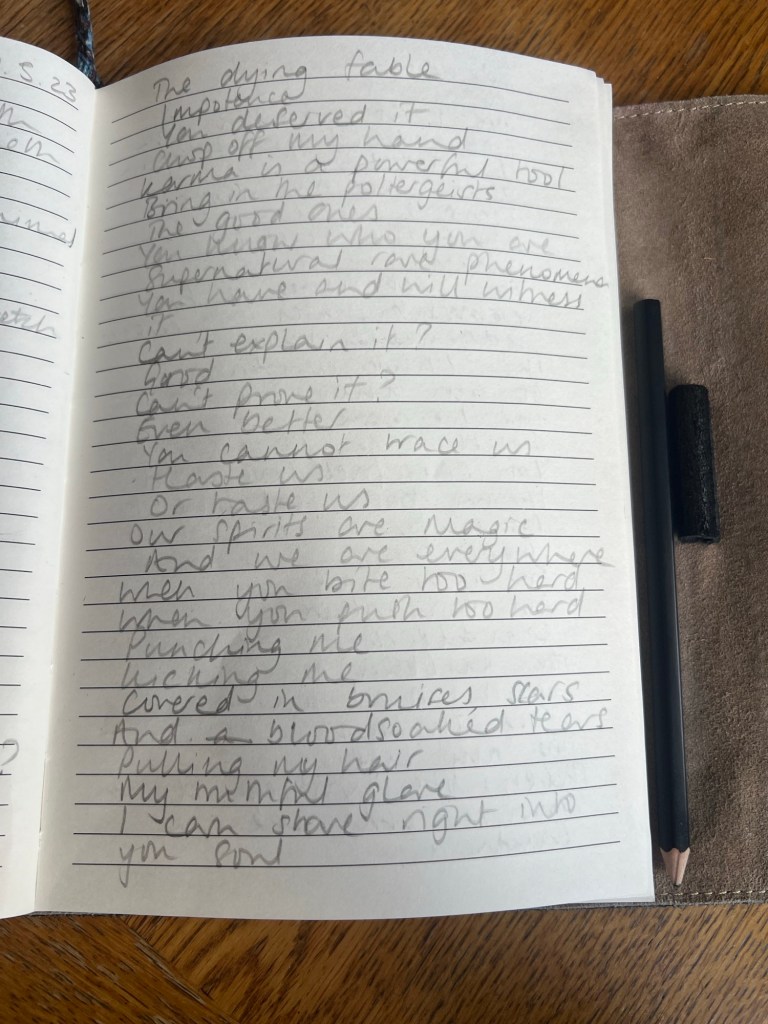 .5.23
The dying fable
Impotence
You deserved it
Chop off my hand
Karma is a powerful tool
Bring in the poltergeists
The good ones
You know who you are
Supernatural rare phenomena
You have and will witness
it
Can't explain it?
Good
Can't prove it?
Even better
You cannot trace us
Haste us
Or taste us
Our spirits are Magic
And we are everywhere
When you bite too hard
When you push too hard
Punching me
Kicking me
Covered in bruices, scars
And bloodsoaked tears
Pulling my hair
My glare
I can stare right into
you soul